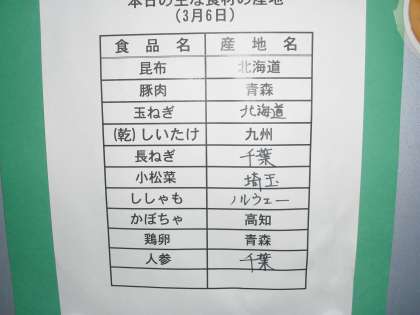 本日の主な食材の産地
(3月6日)
食品名 産地名
昆布 北海道
豚肉 青森
玉ねぎ 北海道
(乾)しいたけ 九州
長ねぎ 千葉
小松菜 埼玉
ししゃも ノルウェー
かぼちゃ 高知
鶏卵 青森
人参 千葉